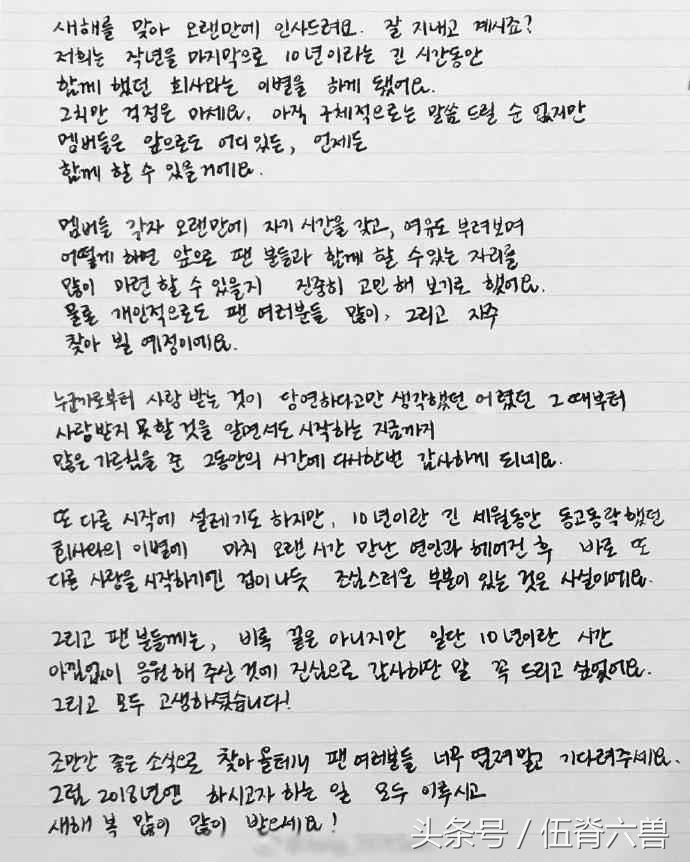 새해를 맞아 오랜만에 인사드려요. 잘 지내고 계시죠?
저희는 작년을 마지막으로 10년이라는 긴 시간동안
함께 했던 회사와는 이별을 하게 됐어요.
그치만 걱정은 마세요. 아직 구체적으로는 말씀 드릴 순 없지만
멤버들은 앞으로도 어디 있든, 언제든
함께 할 수 있을거에요.
멤버들 각자 오랜만에 자기 시간을 갖고, 여유도 부려보며
어떻게 하면 앞으로 팬 분들과 함께 할 수 있는 자리를
많이 마련할 수 있을지 진중히 고민해 보기로 했어요.
물론 개인적으로도 팬 여러분들 많이, 그리고 자주
찾아 뵐 예정이에요.
누군가로부터 사랑 받는 것이 당연하다고만 생각했던 어렸던 그 때부터
사랑받지 못할 것을 알면서도 시작하는 지금까지
많은 가르침을 준 그동안의 시간에 다시한번 감사하게 되네요.
또 다른 시작에 설레기도 하지만, 10년이란 긴 세월동안 동고동락했던
회사와의 이별에 마치 오랜 시간 만난 연인과 헤어진 후 바로 또
다른 사랑을 시작하기엔 겁이 나듯 조심스러울 부분이 있는 것은 사실이에요.
그리고 팬 분들께는, 비록 끝은 아니지만 일단 10년이란 시간
아낌없이 응원해 주신 것에 진심으로 감사하단 말 꼭 드리고 싶었어요.
그리고 모두 고생하셨습니다!
조만간 좋은 소식으로 찾아올테니 팬 여러분들 너무 염려말고 기다려주세요.
그럼 2018년엔 하시고자 하는 일 모두 이루시고
새해 복 많이 많이 받으세요!
头条号 / 伍脊六兽